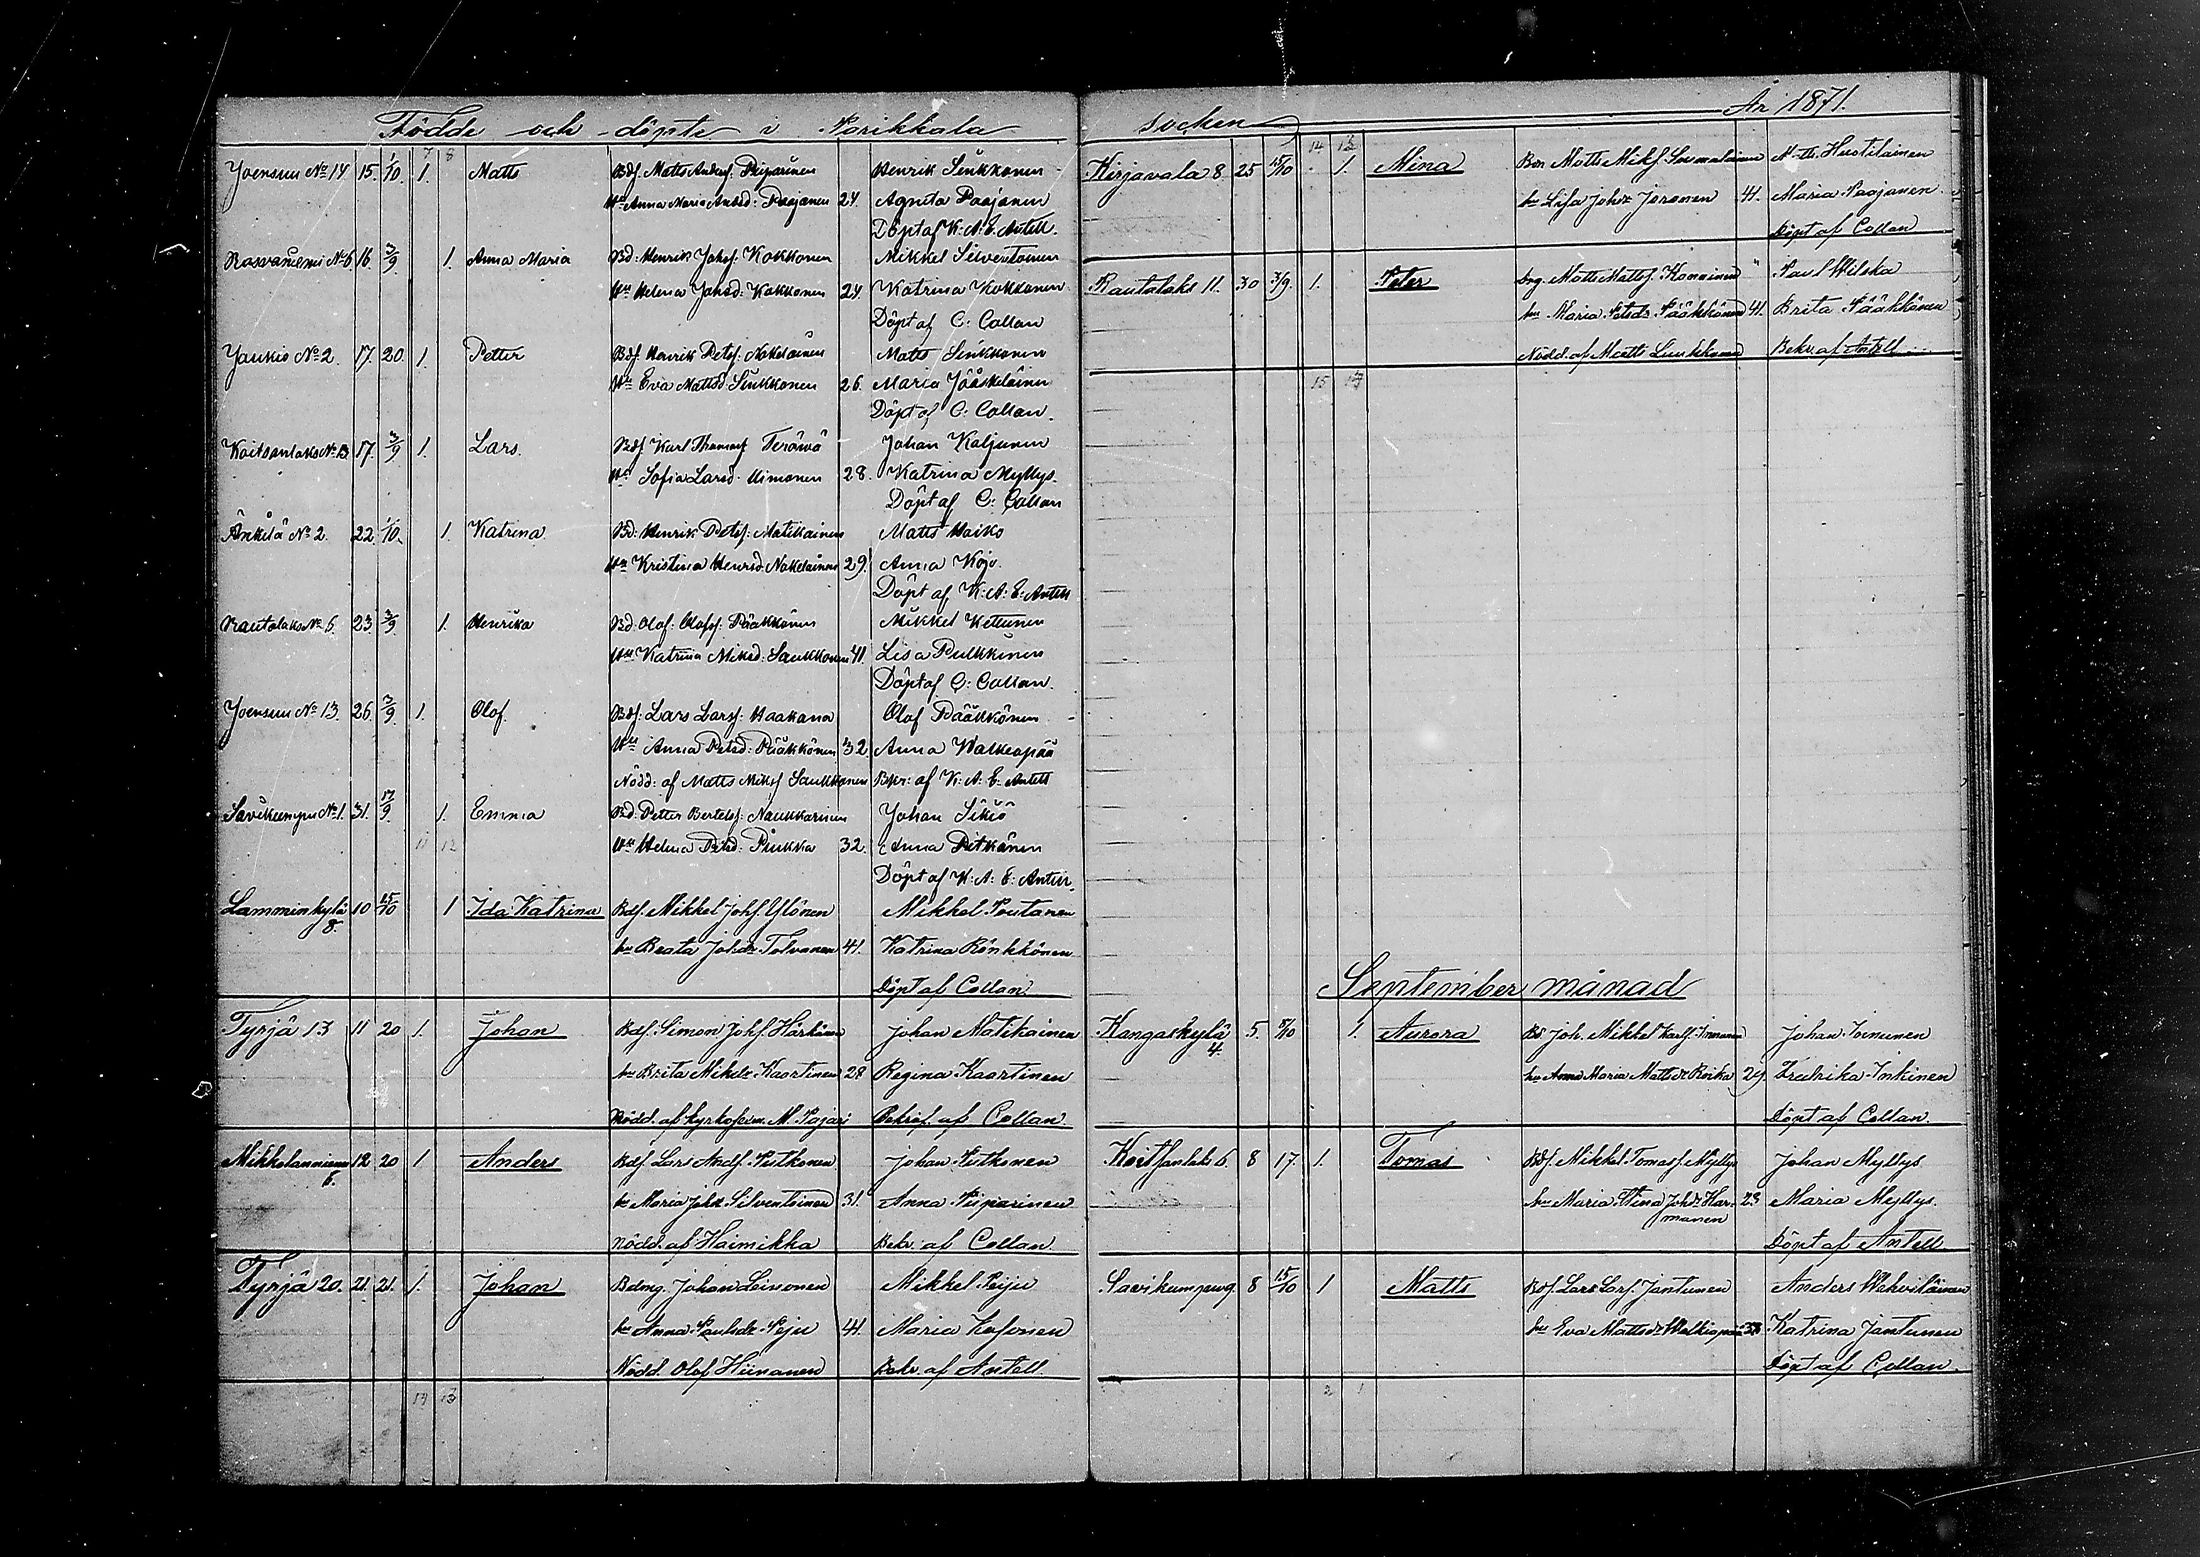 Födde och döpte i Parikkala
Joensuu No 14 15. 1/10. 1. Matts Bdf. Matts Andersf. Piiparinen Henrik Sinkkonen
Hu Anna Maria Andsd: Paajanen 24. Agneta Paajanen
Döpt af K: A: E. Antell.
Rasvaniemi No 6 16. 3/9. 1. Anna Maria Bd: Henrik Johsf: Kokkonen Mikkel Silventoinen
Hu Helena Johsd: Kokkonen 24. Katrina Kokkonen
Döpt af C: Collan
Jaukio No 2. 17. 20. 1. Petter Bdf. Henrik Petsf: Nokelainen Matts Sinkkonen
Hu Eva Mattsd: Sinkkonen 26. Maria Jääskeläinen
Döpt af C: Collan.
Koitsanlaks No 13. 17. 3/9 1. Lars. Bdf. Karl Thomasf Terävä Johan Kaljunen
Hu Sofia Larsd. Mimonen 28. Katrina Myllys.
Döpt af C: Collan
Änkilä No 2. 22. 1/10. 1. Katrina. Bd: Henrik Petsf: Matikainen Matts Haiko
Hu Kristina Henrsd. Nokelainen 29. Anna Kojo.
Döpt af K: A: E: Antell
Rautalaks No 6. 23. 3/9. 1. Henrika Bd. Olof. Olofsf: Pääkkönen Mikkel Kettunen
Hu Katrina Miksd: Saukkonen 41. Lisa Pulkkinen
Döpt af C: Collan.
Joensuu No 13. 26. 3/9. 1. Olof. Bdf: Lars Larsf: Haakana Olof Pääkkönen
Hu Anna Petsd: Pääkkönen 32. Anna Walkeapää
Nödd: af Matts Miksf Saukkonen Bekr: af K: A: E: Antell
Savikumpu No 1. 31. 17/9. 1. Emma Bd. Petter Bertelsf: Naukkarinen Johan Sikiö
11 12 Hu Helena Petsd: Pinkka 32. Anna Pitkänen
Döpt af K: A: E: Antell.
Lamminkylä 8. 10 15/10 1 Ida Katrina Bdf. Mikkel Johsf. Ylönen Mikkel Poutanen
hu Beata Johdr Tolvanen 41. Katrina Rönkkönen
Döpt af Collan.
Tyrjä 13 11 20 1. Johan Bdf. Simon Johsf. Härkönen Johan Matikainen
hu Brita Mikdr Kaartinen 28 Regina Kaartinen
Nödd. af M. Pajari Bekräf. af Collan.
Mikkolanniemi 6. 12. 20 1. Anders Bdf. Lars Andf. Pitkonen Johan Pitkonen
hu Maria Johdr Silventoinen 31. Anna Piiparinen
Nödd. af Haimikka Bekr. af Collan.
Tyrjä 20. 21. 21. 1. Johan Johan Leinonen Mikkel Peiju
hu Anna Paulsdr Peiju 41. Maria Kosonen
Nödd. Olof Hiinanen Bekr. af Antell.
14 13
socken År 1871.
Kirjavala 8. 25 15/10 1. Mina Matts Miksf. Matts. Huotilainen
hu Lisa Johdr Joronen 41. Maria Paajanen
Döpt af Collan
Rautalaks 11. 30 3/9. 1. Peter Matts Mattsf. Konninen Paul Wilska
hu Maria Petsdr Pääkkönen 41. Brita Pääkkönen
Nödd. af Matts Bekr. af Antell
15 13
September månad
Kangaskylä 4. 5. 8/10 1. Aurora Joh. Mikkel Karlf. Johan
hu Anna Maria Mattsdr Roika 29. Fredrika Inkinen
Döpt af Collan.
Koitsanlaks 6. 8 17. 1. Tomas Bdf. Mikkel Tomasf. Myllys Johan Myllys
hu Maria Stina Johdr Harmanen 23 Maria Myllys.
Döpt af Antell
Savikumpu 9. 8 15/10 1 Matts Bdf. Lars Larsf. Jantunen Anders Wehviläinen
hu Eva Mattsdr Walkiapää 38 Katrina Jantunen
Döpt af Collan.
2 1